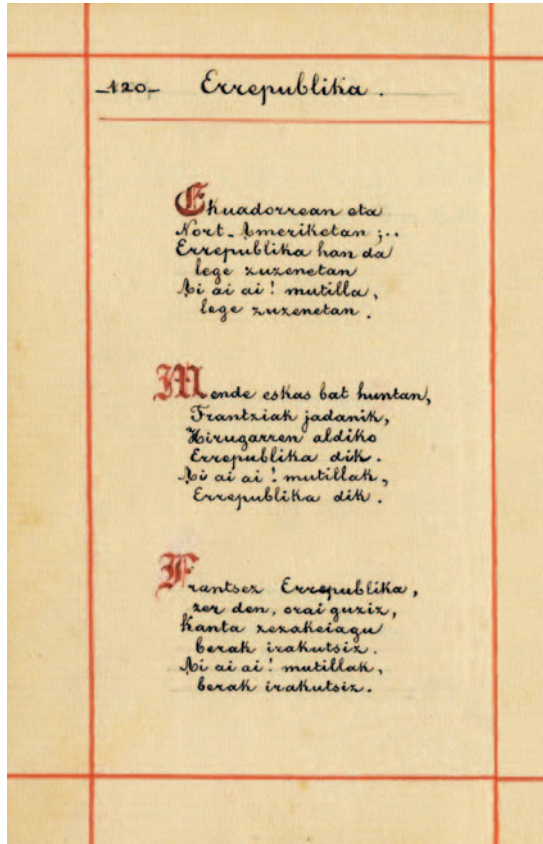 -120- Errepublika.
Ekuadorrean eta
Nort-Ameriketan ;..
Errepublika han da
lege zuzenetan
Ai ai ai! mutilla,
lege zuzenetan.
Mende eskas bat huntan,
Frantziak jadanik,
Hirugarren aldiko
Errepublika dik.
Ai ai ai! mutillak,
Errepublika dik.
Frantsez Errepublika,
zer den, orai guziz,
Kanta zezakeiagu
berak irakutsiz.
Ai ai ai! mutillak,
berak irakutsiz.